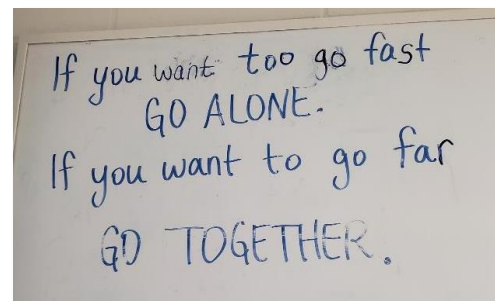 If you want too go fast
GO ALONE.
If you want to go far
GO TOGETHER.